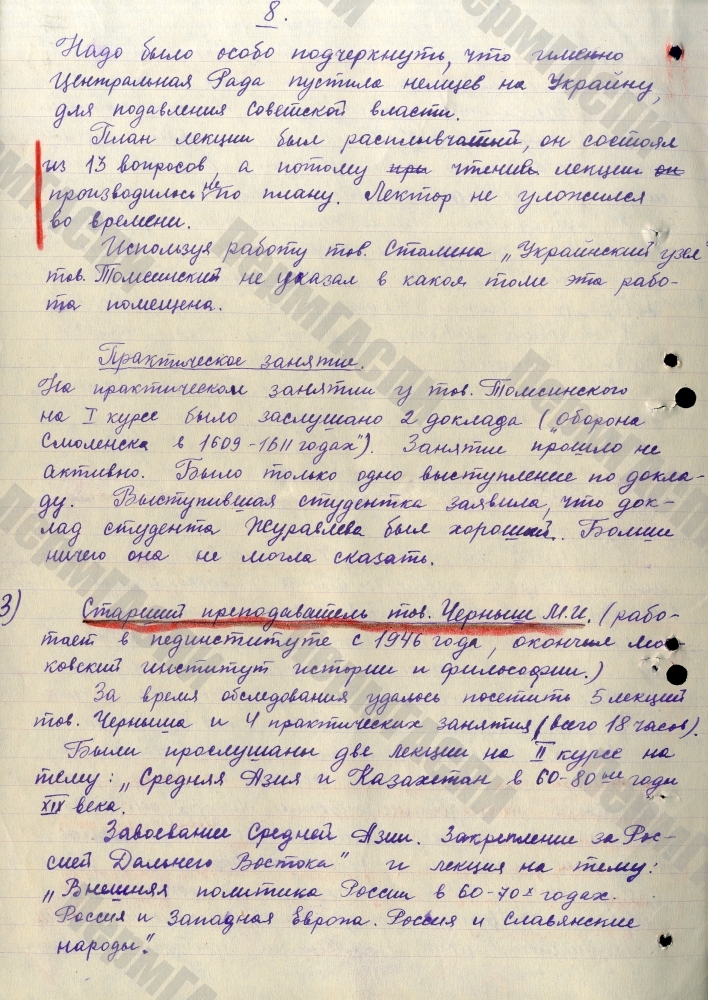 8.
Надо было особо подчеркнуть, что именно
Центральная Рада пустила немцев на Украину,
для подавления Советской власти.
План лекции был расплывчатый, он состоял
из 13 вопросов, а потому при чтение лекции он
производилось не по плану. Лектор не уложился
во времени.
Используя работу тов. Сталина „Украинский узел"
тов. Томсинский не указал в каком томе эта рабо-
та помещена.
Практическое занятие.
На практическом занятии у тов. Томсинского
на I курсе было заслушано 2 доклада („Оборона
Смоленска в 1609-1611 годах"). Занятие прошло не
активно. Было только одно выступление по докла-
ду. Выступившая студентка заявила, что док-
лад студента Журавлева был хороший. Больше
ничего она не могла сказать.
3) Старший преподаватель тов. Черныш М.И. (рабо-
тает в пединституте с 1946 года, окончил Мос-
ковский институт истории и философии.)
За время обследования удалось посетить 5 лекций
тов. Черныша и 4 практических занятия (всего 18 часов).
Были прослушаны две лекции на II курсе на
тему: „Средняя Азия и Казахстан в 60-80ые годы
XIX века.
Завоевание Средней Азии. Закрепление за Рос-
сией Дальнего Востока" и лекция на тему:
„Внешняя политика России в 60-70х годах.
Россия и Западная Европа. Россия и славянские
народы".
ПермГАСПИ